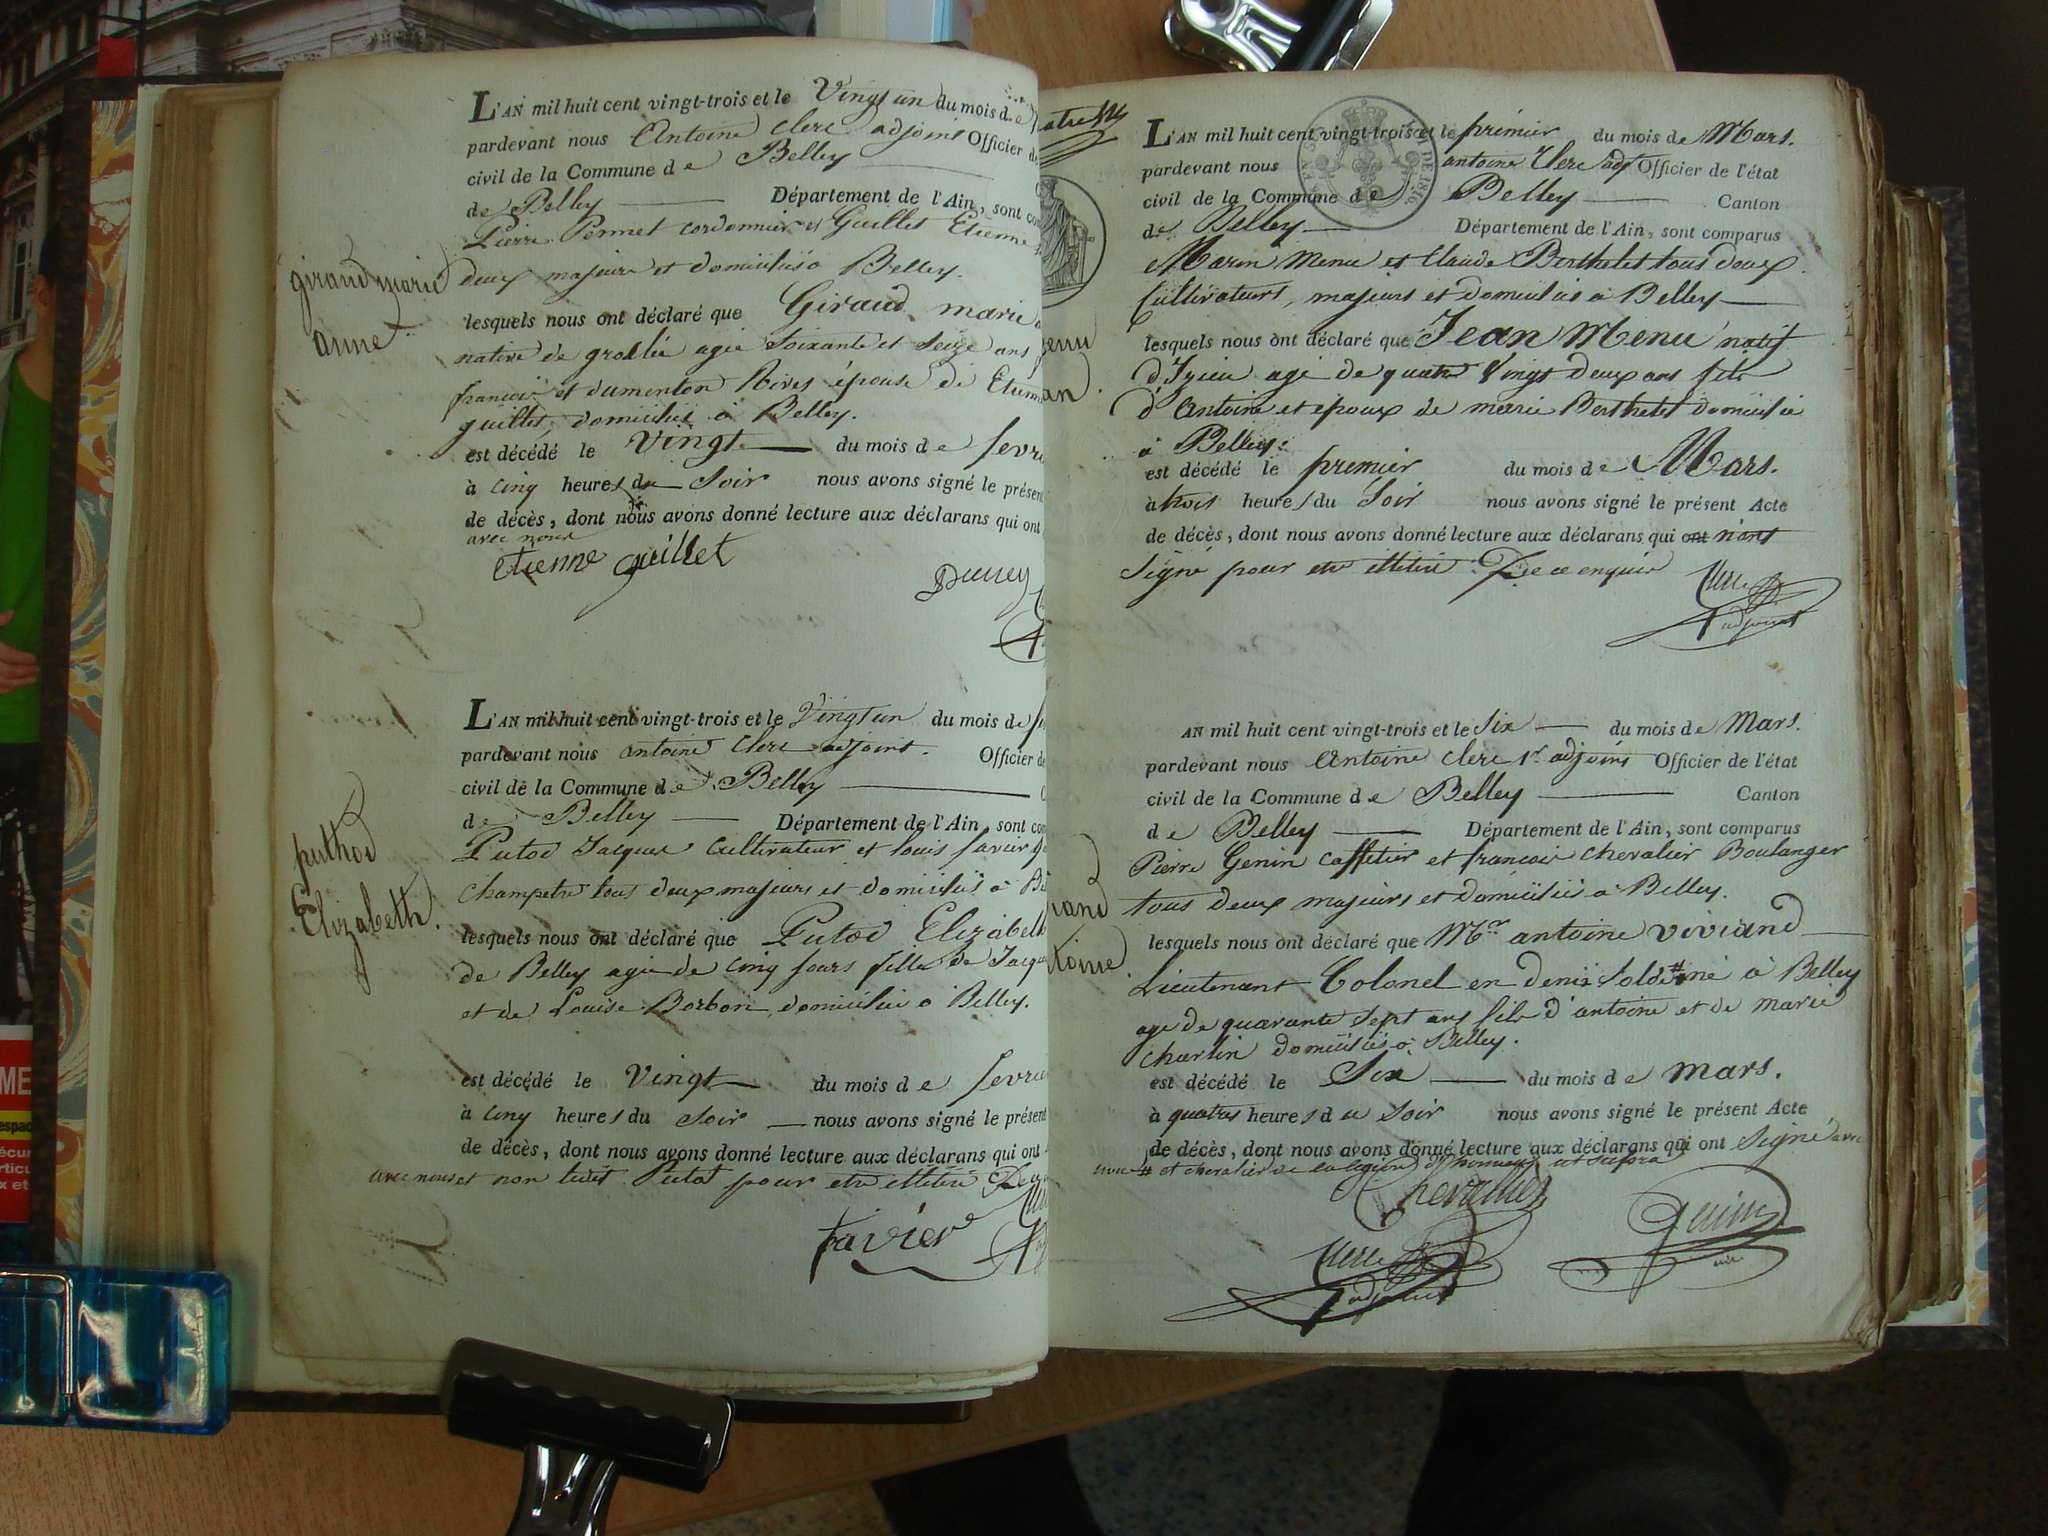 L'AN mil huit cent vingt-trois et le Vingt un du mois de
pardevant nous Antoine Clerc adjoint Officier de
civil de la Commune de Belley
de Belley Département de l'Ain, sont
Pierre Pernet cordonnier et Guillet Etienne
deux majeurs et domiciliés à Belley.
girand marie
anne
lesquels nous ont déclaré que Giraud marie
native de groslée agée Soixante et Seize ans
françois et dumenton Rives épouse de Etienne
guillet, domiciliés à Belley.
est décédé le Vingt du mois de fevr
à cinq heures du Soir nous avons signé le présent
de décès, dont nous avons donné lecture aux déclarans qui ont
avec nous
Etienne guillet
L'AN mil huit cent vingt-trois et le Vingt un du mois de
pardevant nous antoine Clerc adjoint. Officier de
civil de la Commune de Belley
de Belley Département de l'Ain, sont
Putod Jacques Cultivateur et louis favier
champetre tous deux majeurs et domiciliés à
puthod
Elizabeth.
lesquels nous ont déclaré que Putod Elizabeth
de Belley agée de cinq jours fille de Jacques
et de Louise Borbon domiciliée à Belley.
est décédé le Vingt du mois de fevr
à cinq heures du Soir nous avons signé le présent
de décès, dont nous avons donné lecture aux déclarans qui ont
avec nous et non ledit Putod pour etre illitéré De
favier
L'AN mil huit cent vingt-trois et le premier du mois de Mars.
pardevant nous antoine Clerc adjt Officier de l'état
civil de la Commune de Belley Canton
de Belley Département de l'Ain, sont comparus
Marin Menu et Claude Berthelet tous deux
Cultivateurs, majeurs et domiciliés à Belley
lesquels nous ont déclaré que Jean Menu natif
d'Izieu agé de quatre Vingt deux ans fils
d'Antoine et époux de marie Berthelet domicilié
à Belley.
est décédé le premier du mois de Mars.
à trois heures du Soir nous avons signé le présent Acte
de décès, dont nous avons donné lecture aux déclarans qui ont n'ont
Signé pour etre illitéré De ce enquis
Clerc
adjoint
AN mil huit cent vingt-trois et le Six du mois de Mars.
pardevant nous Antoine Clerc 1er adjoint Officier de l'état
civil de la Commune de Belley Canton
de Belley Département de l'Ain, sont comparus
Pierre Genin caffetier et francois chevalier Boulanger
tous deux majeurs et domiciliés à Belley.
lesquels nous ont déclaré que Mr antoine viviand
Lieutenant Colonel en demi Solde # né à Belley
agé de quarante Sept ans fils d'antoine et de marie
charlin domiciliés à Belley.
est décédé le Six du mois de mars.
à quatres heures du Soir nous avons signé le présent Acte
de décès, dont nous avons donné lecture aux déclarans qui ont Signé avec
nous # et chevalier de la légion d'honneur
Chevalier
Genin
Clerc
adjoint